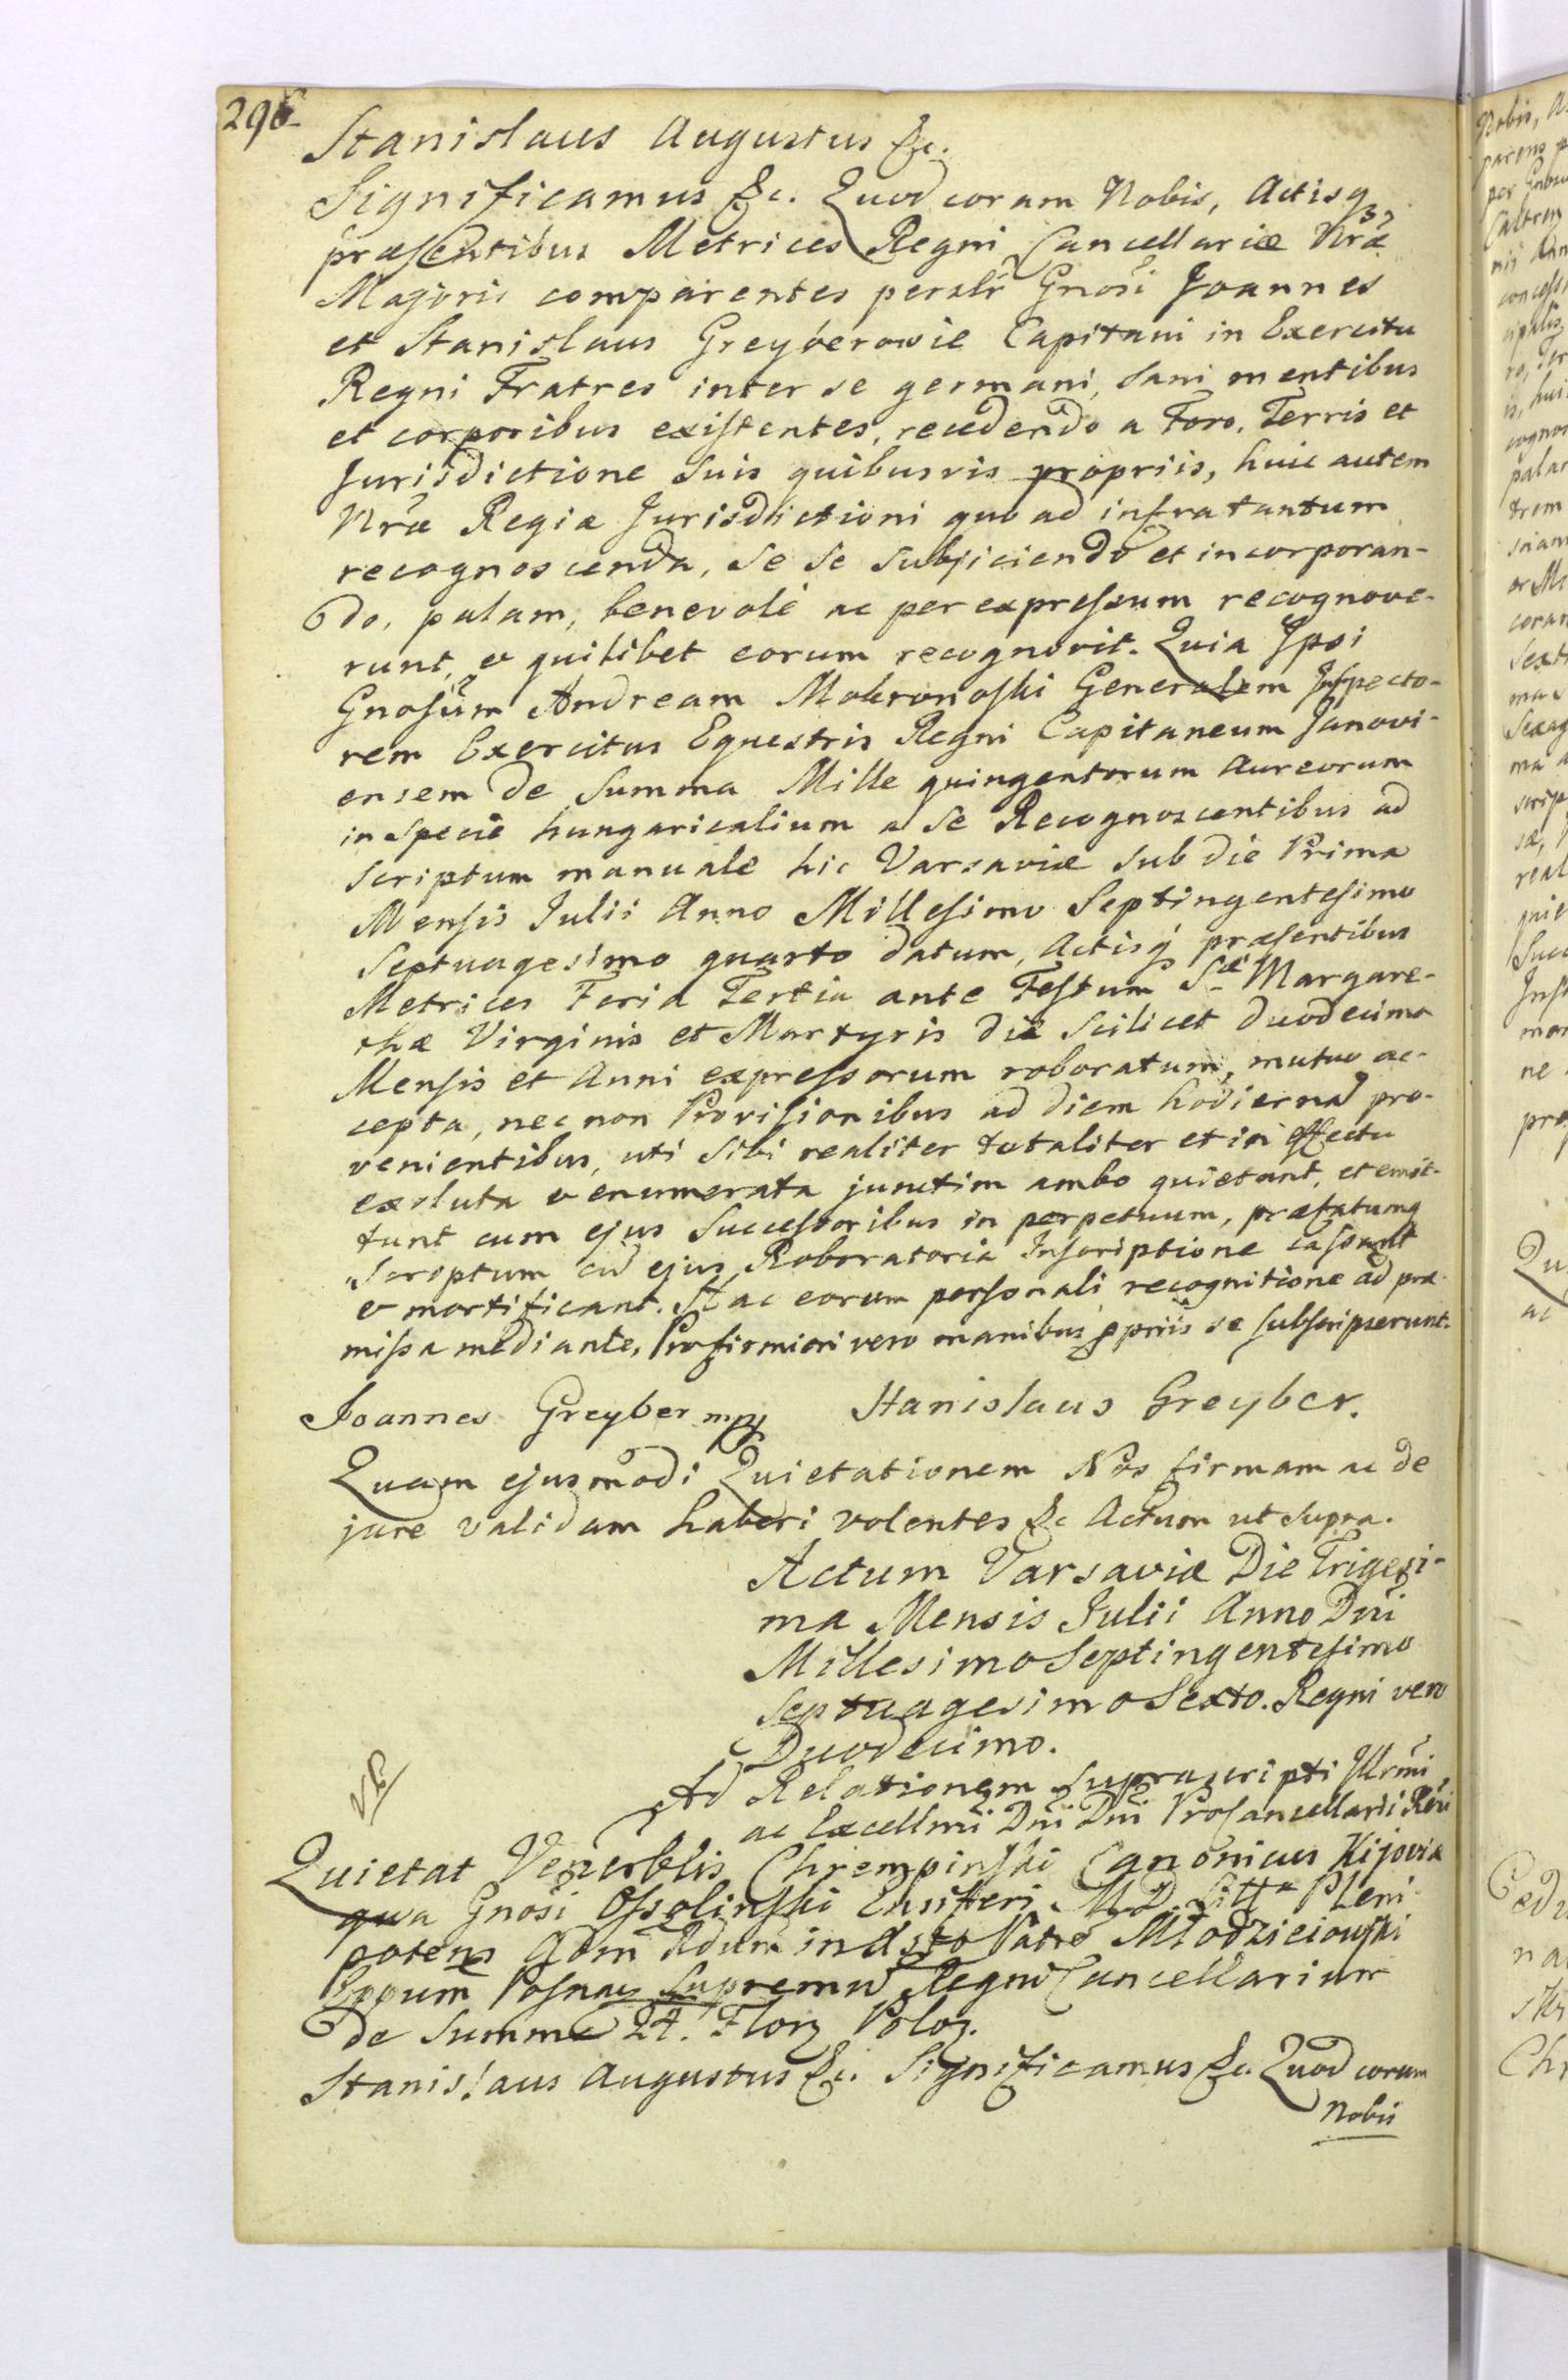 296
Stanislaus Augustus &c.
Significamus &c. Quod coram Nobis, Actisq3
præsentibus Metrices Regni Cancellariæ Nræ
Majoris comparentes persltr Gnosi Joannes
et Stanislaus Greyberowie Capitani in Exercitu
Regni Fratres inter se germani, sani mentibus
et corporibus existentes, recedendo a Foro, Terris et
Jurisdictione suis quibusvis propriis, huic autem
Nræ Regiæ Jurisdictioni quo ad infratantum
recognoscenda, se se subjiciendo et incorporan-
do, palam, benevolè ac per expressum recognove-
runt, & quilibet eorum recognovit. Quia Ipsi
Gnosum Andream Mokronoski Generalem Inspecto-
rem Exercitus Equestris Regni Capitaneum Janovi-
ensem de Summa Mille quingentorum Aureorum
in specie hungaricalium a se Recognoscentibus ad
scriptum manuale hic Varsaviæ sub die Prima
Mensis Julii Anno Millesimo Septingentesimo
Septuagesimo quarto datum, Actisq præsentibus
Metrices Feria Tertia ante Festum Sæ Margare-
thæ Virginis et Martyris die scilicet duodecima
Mensis et Anni expressorum roboratum, mutuo ac-
cepta, nec non Provisionibus ad diem hodiernã pro-
venientibus, uti sibi realiter totaliter et in effectu
exsluta & enumerata junctim ambo quietant, et emit-
tunt cum ejus Successoribus in perpetuum, præfatumq
Scroptum cũ ejus Roboratoria Inscriptione cassant
& mortificant. Hac eorum personali recognitione ad præ-
missa mediante, Pro firmiori vero manibus ppriis se subscripserunt.
Joannes Greyber mp Stanislaus Greyber.
Quam ejusmodi Quietationem Nos firmam ac de
jure validam haberi volentes &c Actum ut supra.
Actum Varsaviæ Die Trigesi-
ma Mensis Julii Anno Dni
Millesimo Septingentesimo
Septuagesimo Sexto. Regni vero
Duodecimo.
Ad Relationem suprascripti Illrmi
ac Excellmi Dni Dni Procancellarii Rni
Quietat Venerblis Chrempinski Canonicus Kijoviæ
qua Gnosi Ossolinski Ensiferi M. D. Litt Pleni-
potens in Patre Młodzieiowski
Eppum Posnan Supremũ Regni Cancellarium
de Summa 24. Flor Polo.
Stanislaus Augustus &c. Significamus &c. Quod coram
Nobis